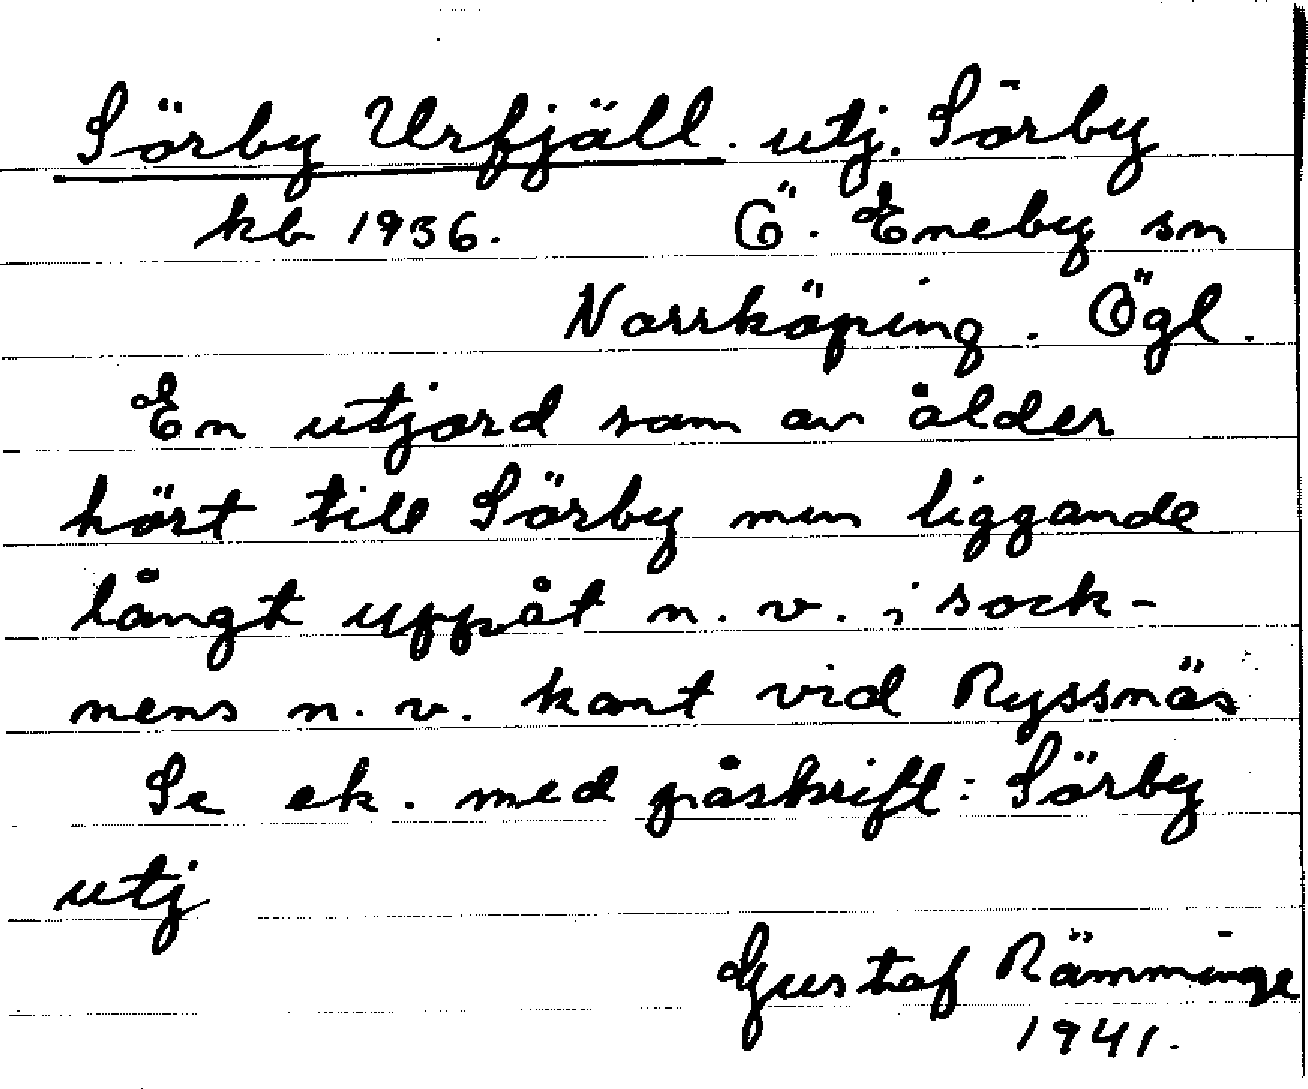 Sörby Urfjäll. utj. Sörby
kb 1936. Ö. Eneby sn
Norrköping. Ögl.
En utjord som av ålder
hört till Sörby men liggande
långt uppåt n. v. i sock-
nens n. v. kant vid Ryssnäs
Se ek. med påskrift: Sörby
utj
Gustaf Rämminge
1941.